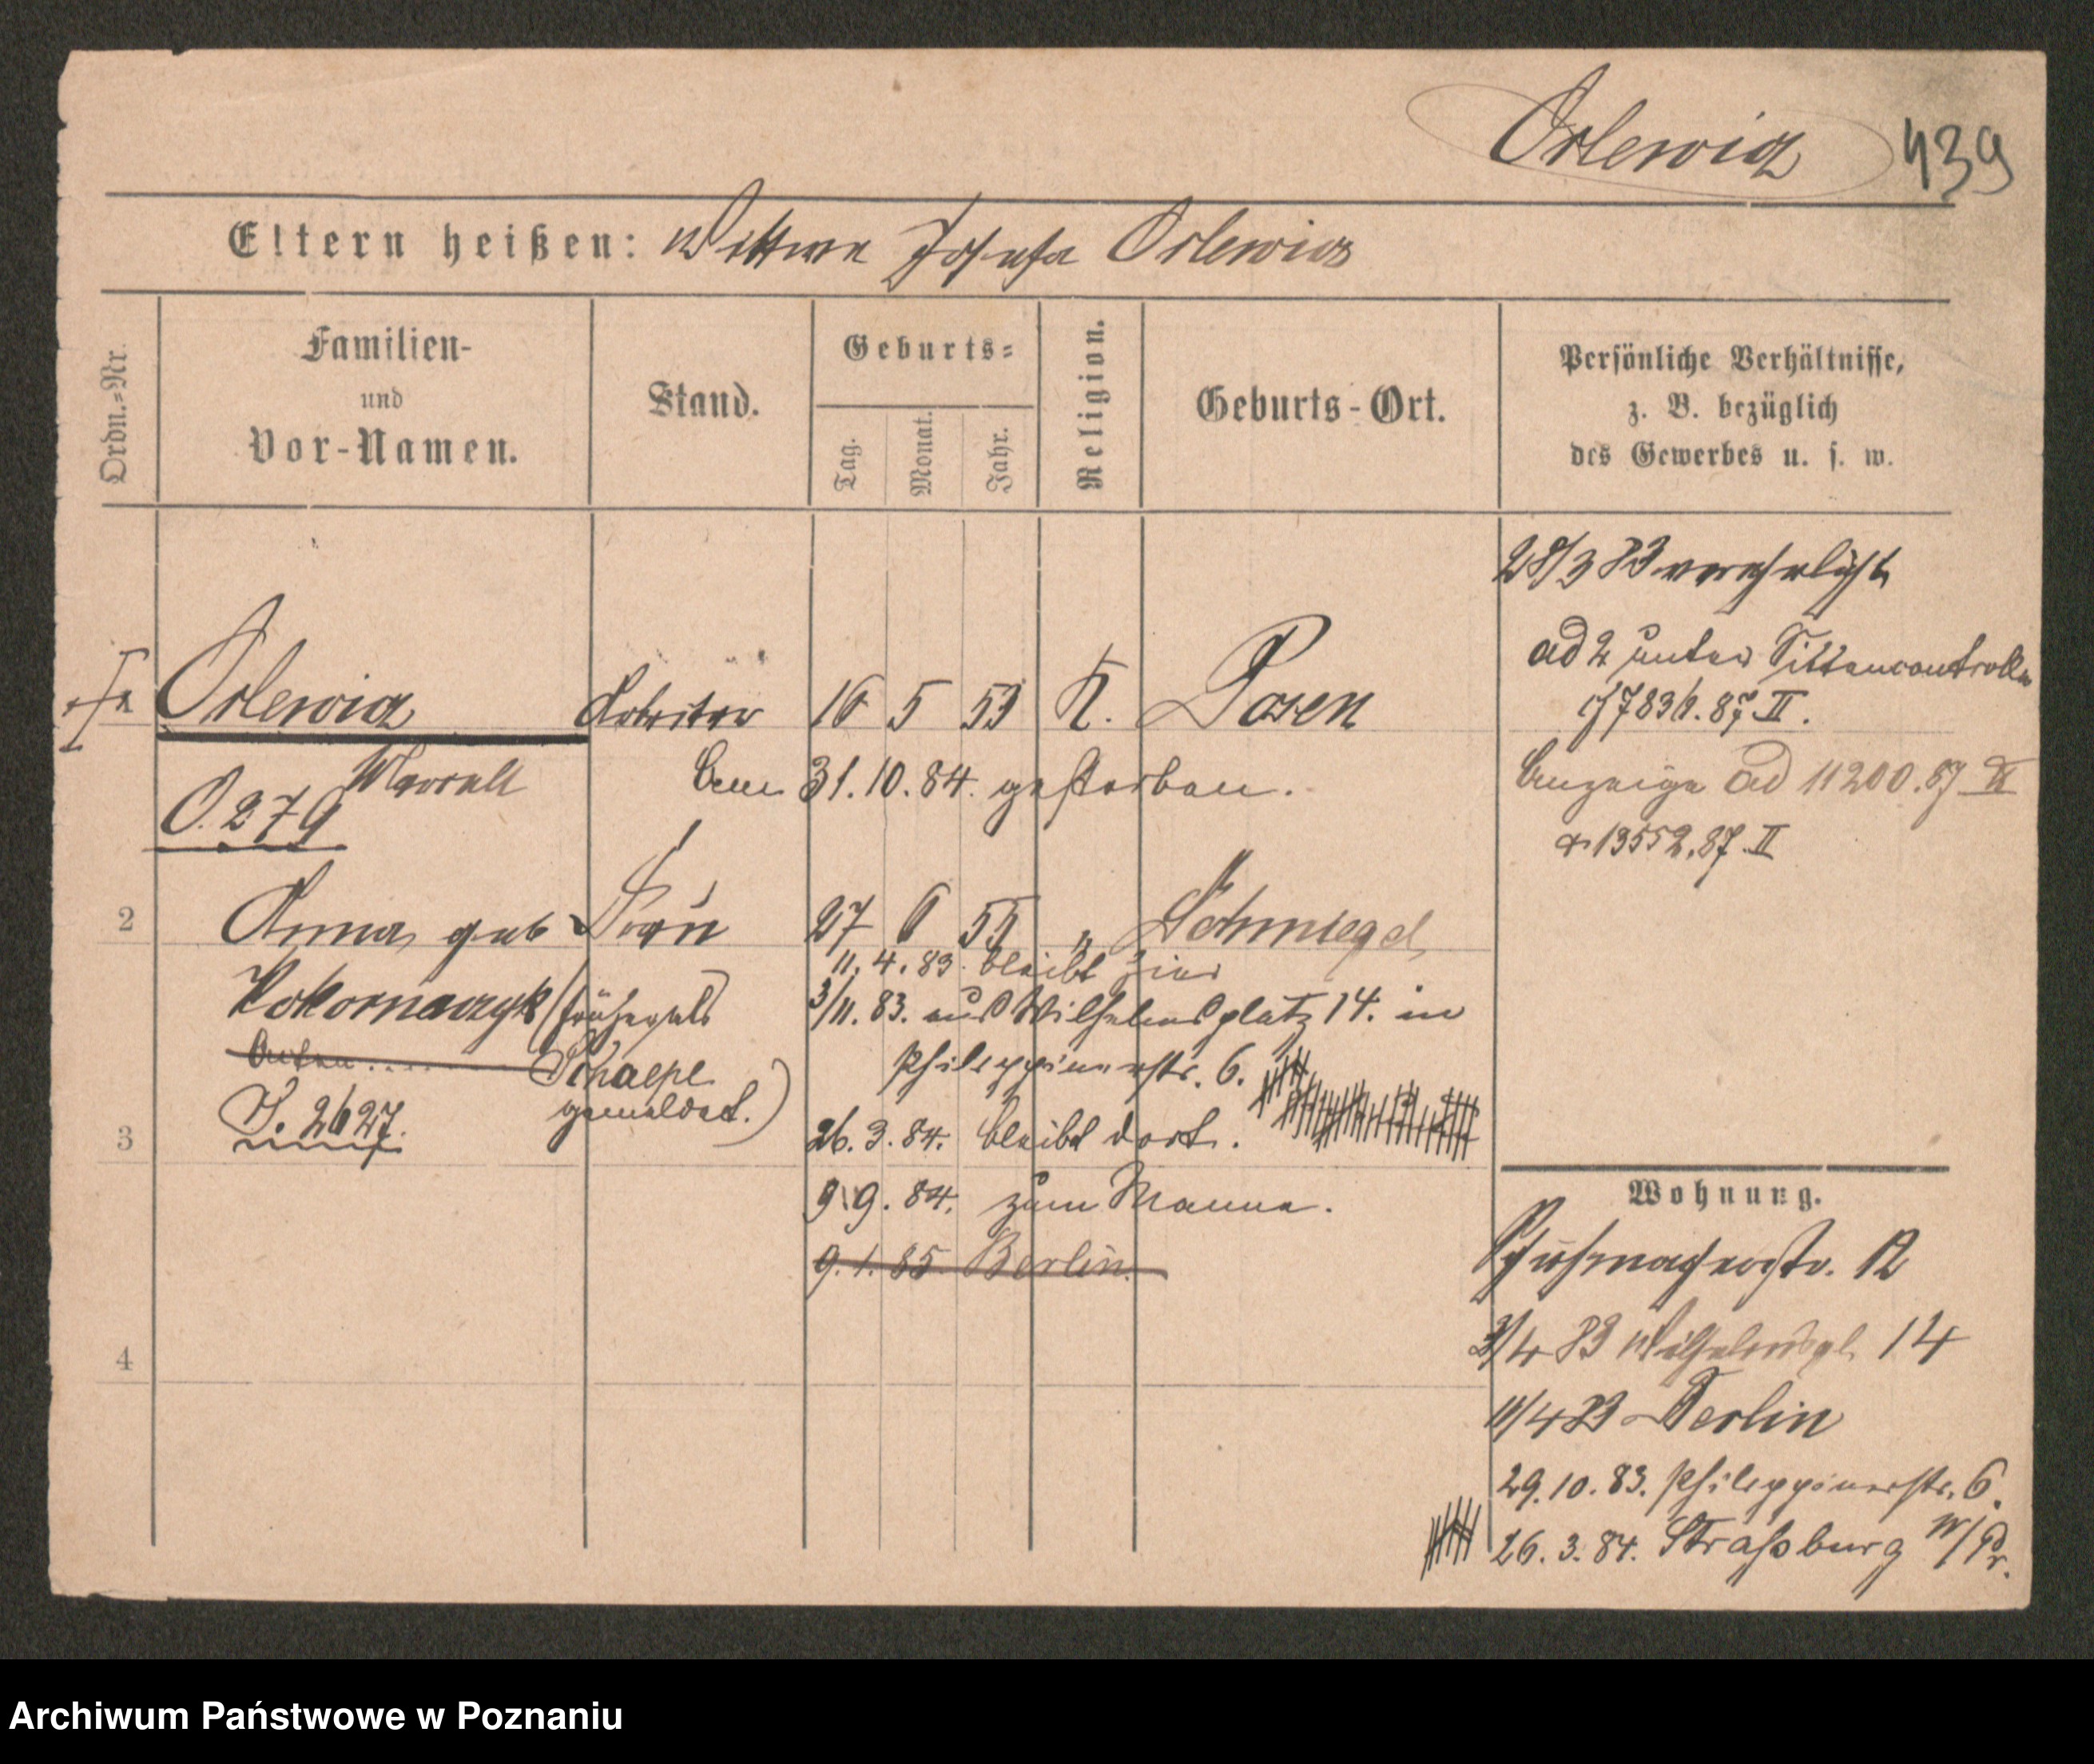 Orlewicz 439
Eltern heißen: Wittwe Josepha Orlewicz
Ordn.-Nr.
Familien-
und
Vor-Namen.
Stand.
Geburts-
Tag.
Monat.
Jahr.
Religion.
Geburts-Ort.
Persönliche Verhältnisse,
z. B. bezüglich
des Gewerbes u. s. w.
28/3 83 verehelicht
ad 2 unter Sittencontrolle
7836. 87. II.
Anzeige ad 11200. 87 II
13552. 87. II
Orlewicz Arbeiter 16 5 59 K. Posen
Marcell
am 31. 10. 84. gestorben.
O. 279
2 Anna geb Frau 27 6 55 " Schmiegel
11. 4. 83. bleibt hier
Kokornaczyk (früher als
3/11. 83. aus Wilhelmsplatz 14. in
Schaepe
Philippinerstr. 6.
gemeldet.)
2627.
3 26. 3. 84. bleibt dort.
9. 9. 84. zum Manne.
9. 1. 85. Berlin.
4
Wohnung.
Schuhmacherstr. 12
3/4 83 Wilhelmspl. 14
11/4 83 Berlin
29. 10. 83. Philippinerstr. 6.
26. 3. 84. Straßburg W/Pr.
Archiwum Państwowe w Poznaniu